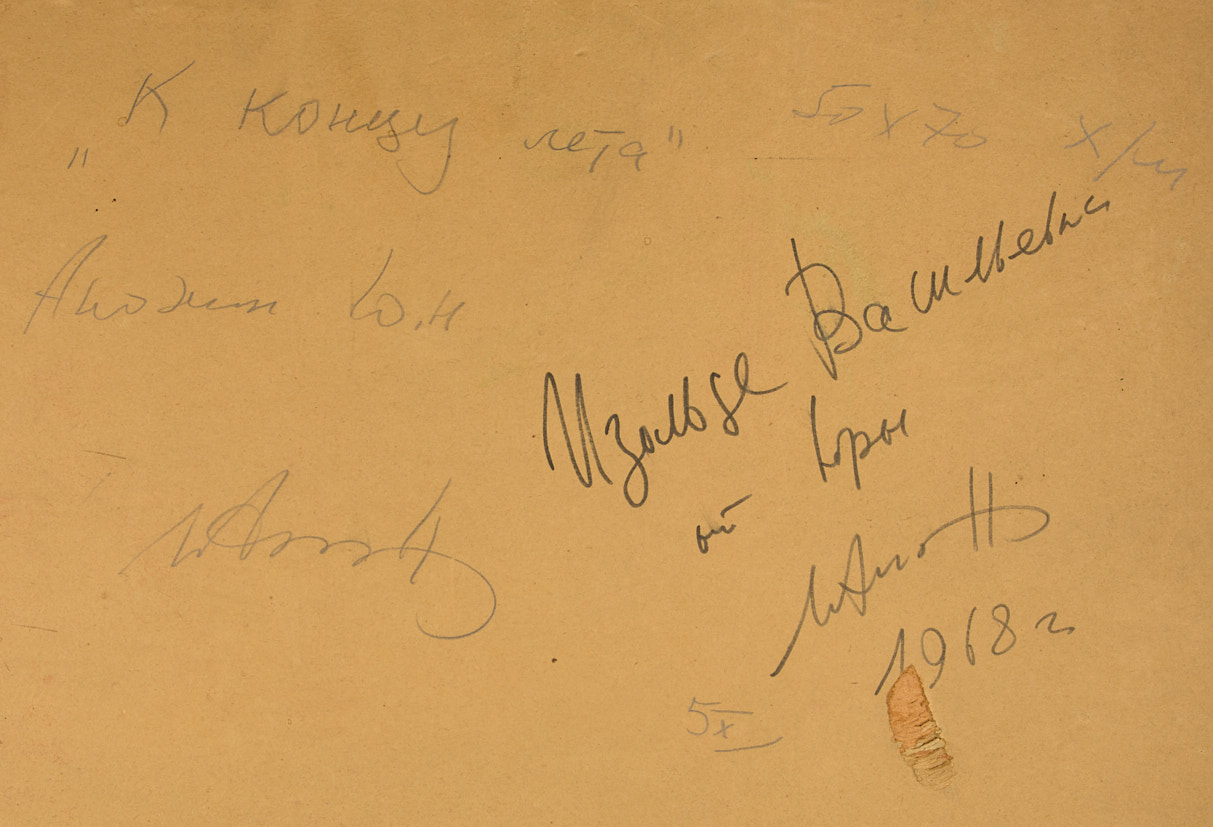 „К концу лета" 50 х 70 х/м
Анохин Ю.н
Изольде Васильевне
от Юры
1968 г
5 X